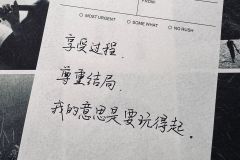 FROM
MOST URGENT SOME WHAT NO RUSH
享受过程.
尊重结局.
我的意思是要玩得起.